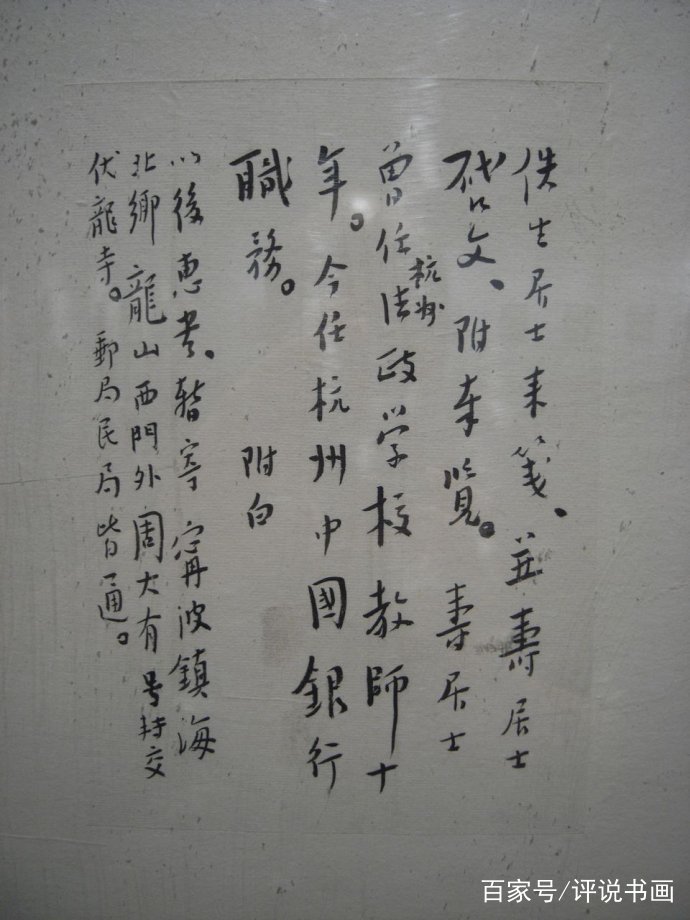 佚生居士来箋、並壽居士
啓文、附奉覽。壽居士
曾任杭州法政学校教師十
年。今任杭州中國銀行
職務。 附白
以後惠書、暫寄寧波鎮海
北鄉龍山西門外周大有号轉交
伏龍寺。郵局民局皆通。
百家号/评说书画